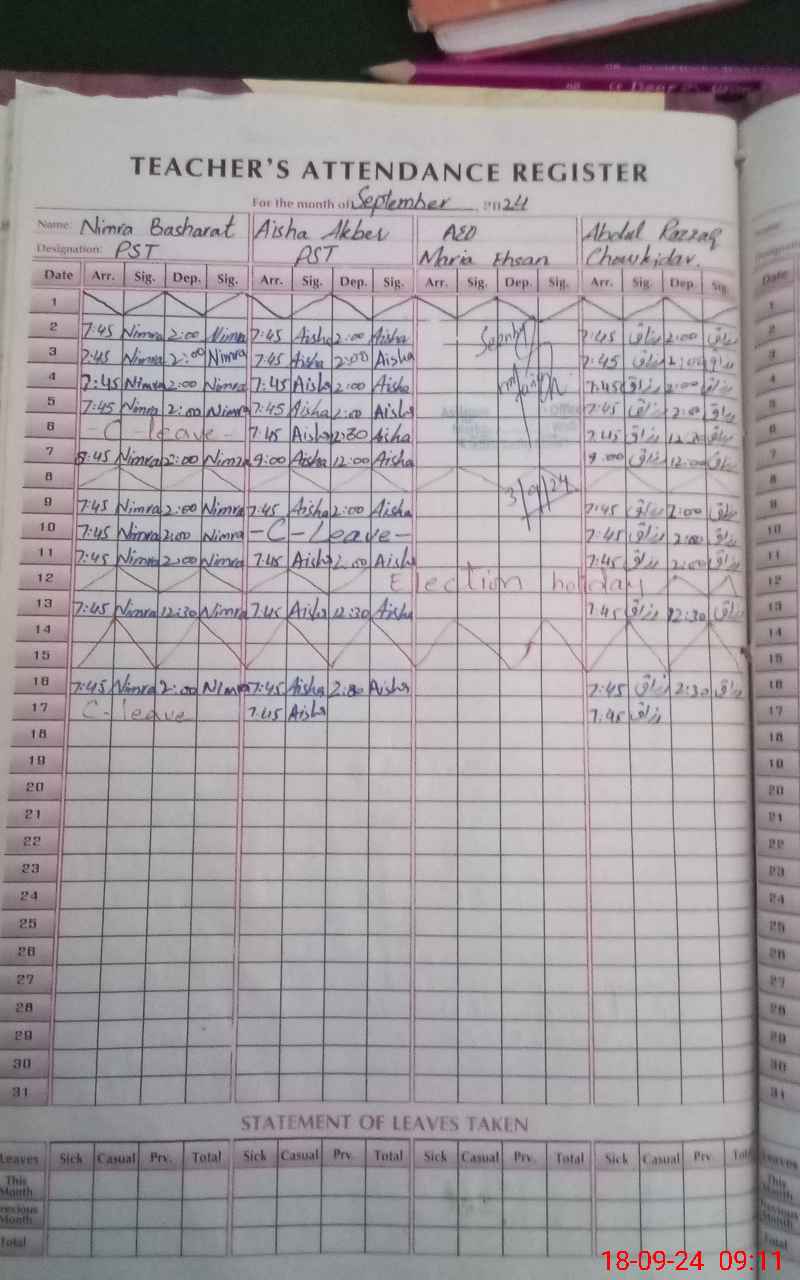 TEACHER'S ATTENDANCE REGISTER
For the month of September 2024
Name: Nimra Basharat Aisha Akber AEO Abdul Razzaq
Designation: PST PST Maria Ehsan Chowkidar.
Date Arr. Sig. Dep. Sig. Arr. Sig. Dep. Sig. Arr. Sig. Dep. Sig. Arr. Sig. Dep. Sig.
1
2 7:45 Nimra 2:00 Nimra 7:45 Aisha 2:00 Aisha 7:45 رزاق 2:00 رزاق
3 7:45 Nimra 2:00 Nimra 7:45 Aisha 2:00 Aisha 7:45 رزاق 2:00 رزاق
4 7:45 Nimra 2:00 Nimra 7:45 Aisha 2:00 Aisha 7:45 رزاق 2:00 رزاق
5 7:45 Nimra 2:00 Nimra 7:45 Aisha 2:00 Aisha 7:45 رزاق 2:00 رزاق
6 - C leave - 7:45 Aisha 12:30 Aisha 7:45 رزاق رزاق
7 8:45 Nimra 2:00 Nimra 9:00 Aisha 12:00 Aisha 9:00 رزاق 12:00 رزاق
8 3/9/24
9 7:45 Nimra 2:00 Nimra 7:45 Aisha 2:00 Aisha 7:45 رزاق 2:00 رزاق
10 7:45 Nimra 2:00 Nimra - C - Leave - 7:45 رزاق 2:00 رزاق
11 7:45 Nimra 2:00 Nimra 7:45 Aisha 2:00 Aisha 7:45 رزاق 2:00 رزاق
12 Election holiday
13 7:45 Nimra 12:30 Nimra 7:45 Aisha 12:30 Aisha 7:45 رزاق 12:30 رزاق
14
15
16 7:45 Nimra 2:00 Nimra 7:45 Aisha 2:30 Aisha 7:45 رزاق 2:30 رزاق
17 C-leave 7:45 Aisha 7:45 رزاق
18
19
20
21
22
23
24
25
26
27
28
29
30
31
STATEMENT OF LEAVES TAKEN
Leaves Sick Casual Prv. Total Sick Casual Prv. Total Sick Casual Prv. Total Sick Casual Prv.
This Month
Previous Month
Total
18-09-24 09:11